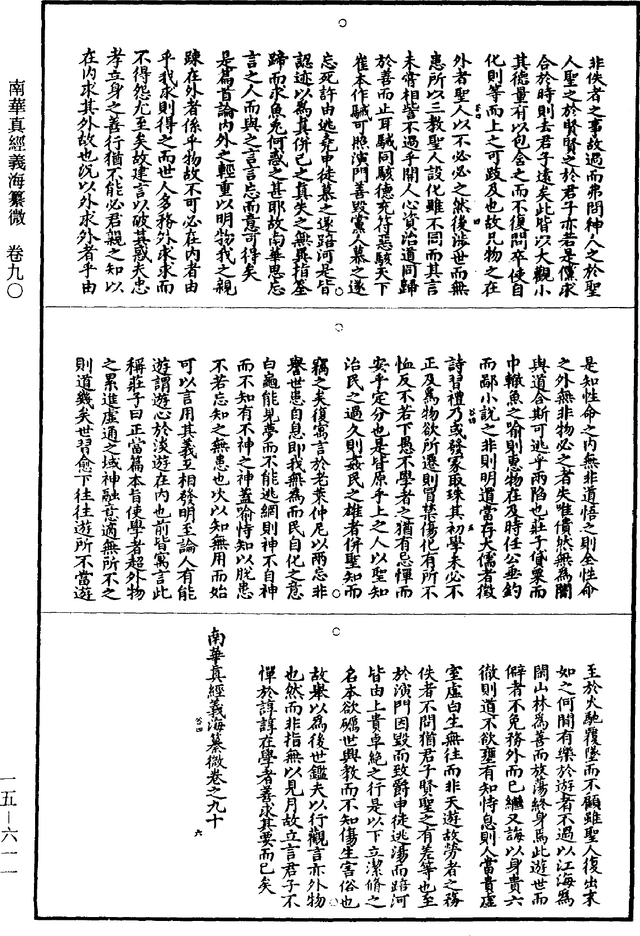 南華真經義海纂微 卷九〇
一五─六一一
非佚者之事故過而弗問神人之於聖
人聖之於賢賢之於君子亦若是儻求
合於時則去君子遠矣此皆以大觀小
其德量有以包含之而不復問卒使自
化則等而上之可跂及也故凡物之在
外者聖人以不必必之然後涉世而無
患所以三教聖人設化雖不同而其言
未嘗相訾不過乎開人心資治道同歸
於善而止耳駴同駭德充符惡駭天下
崔本作駴可照演門善毀黨人慕之遂
忘死許由逃堯申徒慕之遂踣河是皆
認迹以為真併己之真失之無異指筌
蹄而求魚兔何惑之甚耶故南華思忘
言之人而與之言言忘而意可得矣
是篇首論内外之輕重以明物我之親
踈在外者係乎物故不可必在内者由
乎我求則得之而世人多務外求求而
不得怨尤至矣故建言以破其惑夫忠
孝立身之善行猶不能必君親之知以
在内求其外故也況以外求外者乎由
是知性命之内無非道悟之則全性命
之外無非物必之者失唯僓然無為闇
與道合斯可逃乎兩陷也莊子貸粟而
巾轍魚之喻則惠物在及時任公垂釣
而鄙小說之非則明道當存大儒者徵
詩習禮乃或發冢取珠其初學未必不
正及為物欲所遷則冒禁傷化有所不
恤反不若下愚不學者之猶有忌憚而
安乎定分也是皆原乎上之人以聖知
治民之過久則姦民之雄者併聖知而
竊之矣復寓言於老萊仲尼以兩忘非
譽世患自息即我無為而民自化之意
白龜能見夢而不能逃網則神不自神
而不知有不神之神蓋喻恃知以脱患
不若忘知之無患也次以知無用而始
可以言用其義互相發明至論人有能
遊謂遊心於淡遊在内也前皆寓言此
稱莊子曰正當篇本旨使學者超外物
之累進虛通之域神融意適無所不之
則道幾矣世習愈下往往遊所不當遊
至於火馳覆墜而不顧雖聖人復出末
如之何間有樂於遊者不過以江海為
閑山林為善而放蕩終身焉此遊世而
僻者不免務外而已繼又誨以身貴六
徹則道不欲壅有知恃息則人當貴虛
室虛白生無往而非天遊故勞者之務
佚者不問猶君子賢聖之有差等也至
於演門因毀而致爵申徒逃湯而踣河
皆由上貴卓絶之行是以下立潔脩之
名本欲礪世興教而不知傷生害俗也
故舉以為後世鑑夫以行觀言亦外物
也然而非指無以見月故立言君子不
憚於諄諄在學者善求其要而已矣
南華真經義海纂微卷之九十